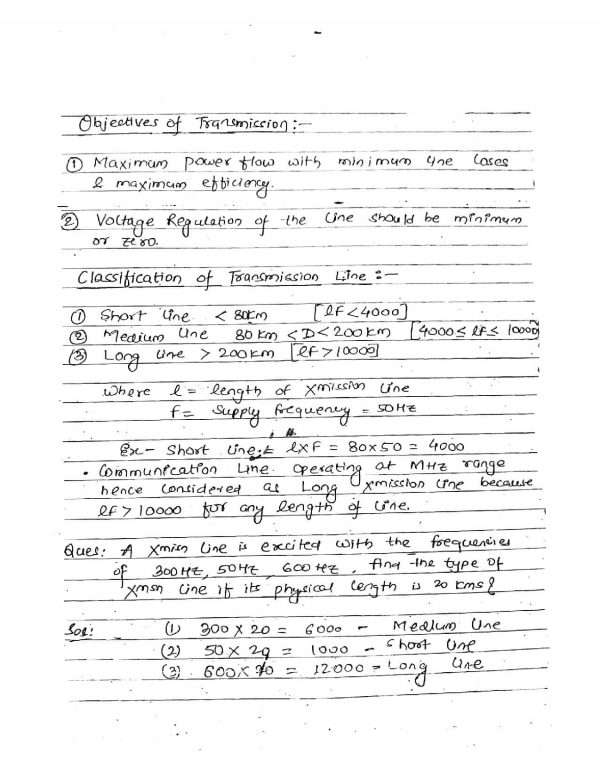 Objectives of Transmission:-
① Maximum power flow with minimum line loses
& maximum efficiency.
② Voltage Regulation of the line should be minimum
or zero.
Classification of Transmission Line:-
① Short line < 80km [lf<4000]
② Medium line 80 km <D<200km [4000≤ lf≤ 10000]
③ Long line > 200km [lf>10000]
where l = length of Xmission line
f= supply frequency = 50Hz
Ex- Short line:- l×f = 80×50 = 4000
• Communication Line operating at MHz range
hence considered as Long Xmission line because
lf>10000 for any length of line.
Ques: A Xmisn line is excited with the frequencies
of 300Hz, 50Hz, 600Hz, find the type of
Xmsn line if its physical length is 20 kms?
Sol: (1) 300 × 20 = 6000 - Medium line
(2) 50 × 20 = 1000 - Short line
(3) 600 × 20 = 12000 - Long line